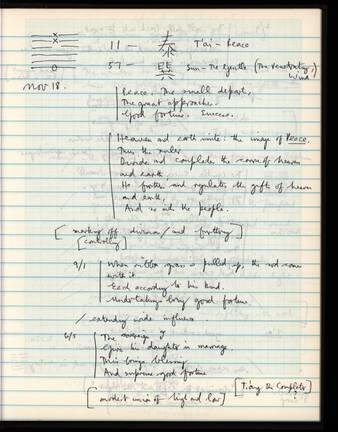 11 — 泰 T'ai - Peace
57 — 巽 Sun - The Gentle (The Penetrating, Wind
Nov 18.
Peace. The small departs,
The great approaches.
Good fortune. Success.
Heaven and earth unite: the image of Peace.
Thus the ruler
Divides and completes the course of heaven
and earth
He furthers and regulates the gifts of heaven
and earth,
And so aids the people.
[ marking off divisions / and furthering ]
[controlling]
9/1 When ribbon grass is pulled up, the sod comes
with it
Each according to his kind.
Undertakings bring good fortune
/ extending wide influence
6/5 The sovereign
Gives his daughter in marriage
This brings blessing
And supreme good fortune
[T'ang the Completer]
[ modest union of high and low ]